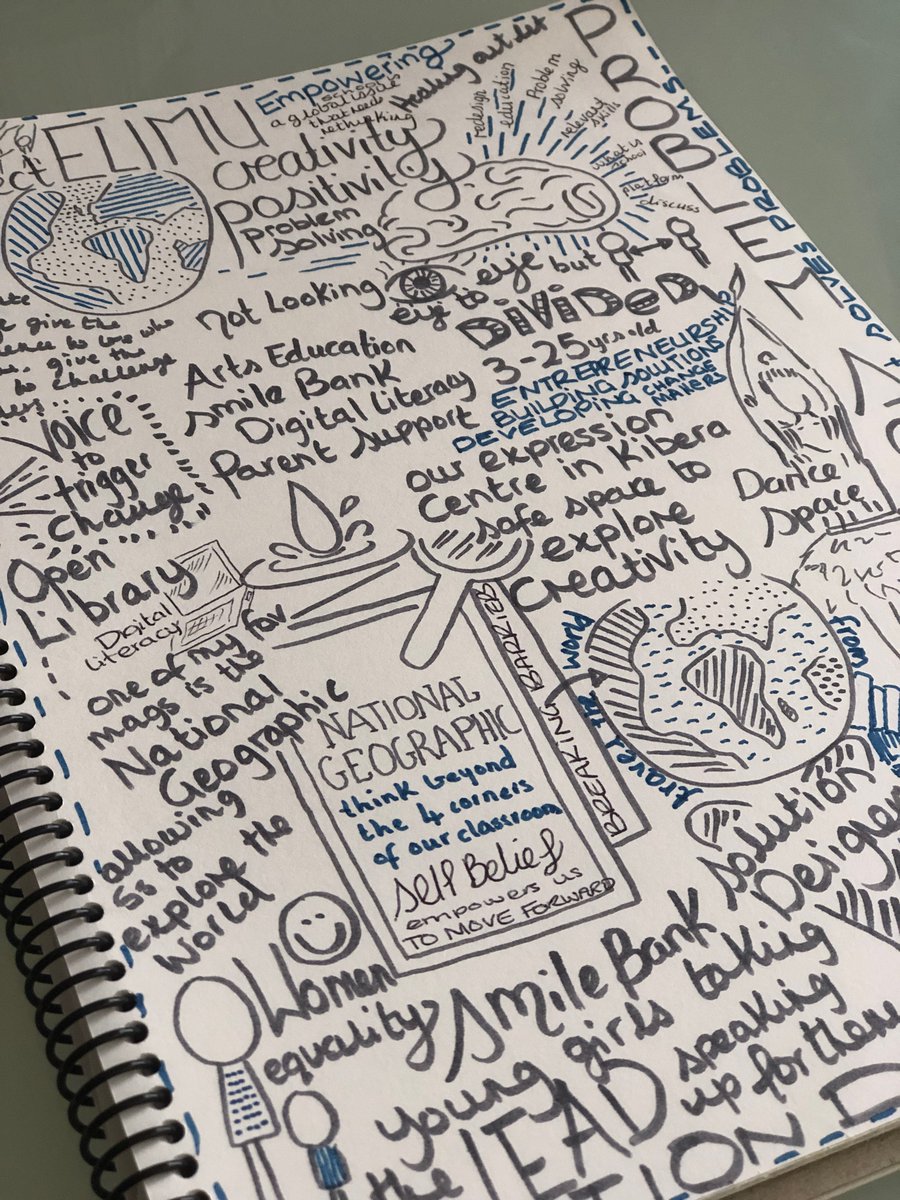 Empowering
schools
a global issue
that needs
rethinking
Healing outlet
ELIMU
ect
Creativity
positivity
problem
solving
redesign
education
problem
solving
relevant
skills
what is
school
platform
discuss
PROBLEM
SOLVES PROBLEMS
not Looking
eye to eye but
DIVIDED
give the
to love who
give the
to challenge
Voice
to
trigger
change
Arts Education
smile Bank
Digital Literacy
Parent support
3-25yrs old
ENTREPRENEURSHIP
BUILDING SOLUTIONS
DEVELOPING CHANGE
MAKERS
our expression
Centre in Kibera
safe space to
explore
creativity
Dance
space
Open
Library
Digital
literacy
one of my fav
mags is the
National
Geographic
allowing
Ss to
explore the
World
NATIONAL
GEOGRAPHIC
think beyond
the 4 corners
of our classroom
Self Belief
empowers us
TO MOVE FORWARD
BREAKING BARRIERS
travel the
solution
Designer
Women
equality
Smile Bank
young girls taking
the LEAD speaking
up for them
TION D